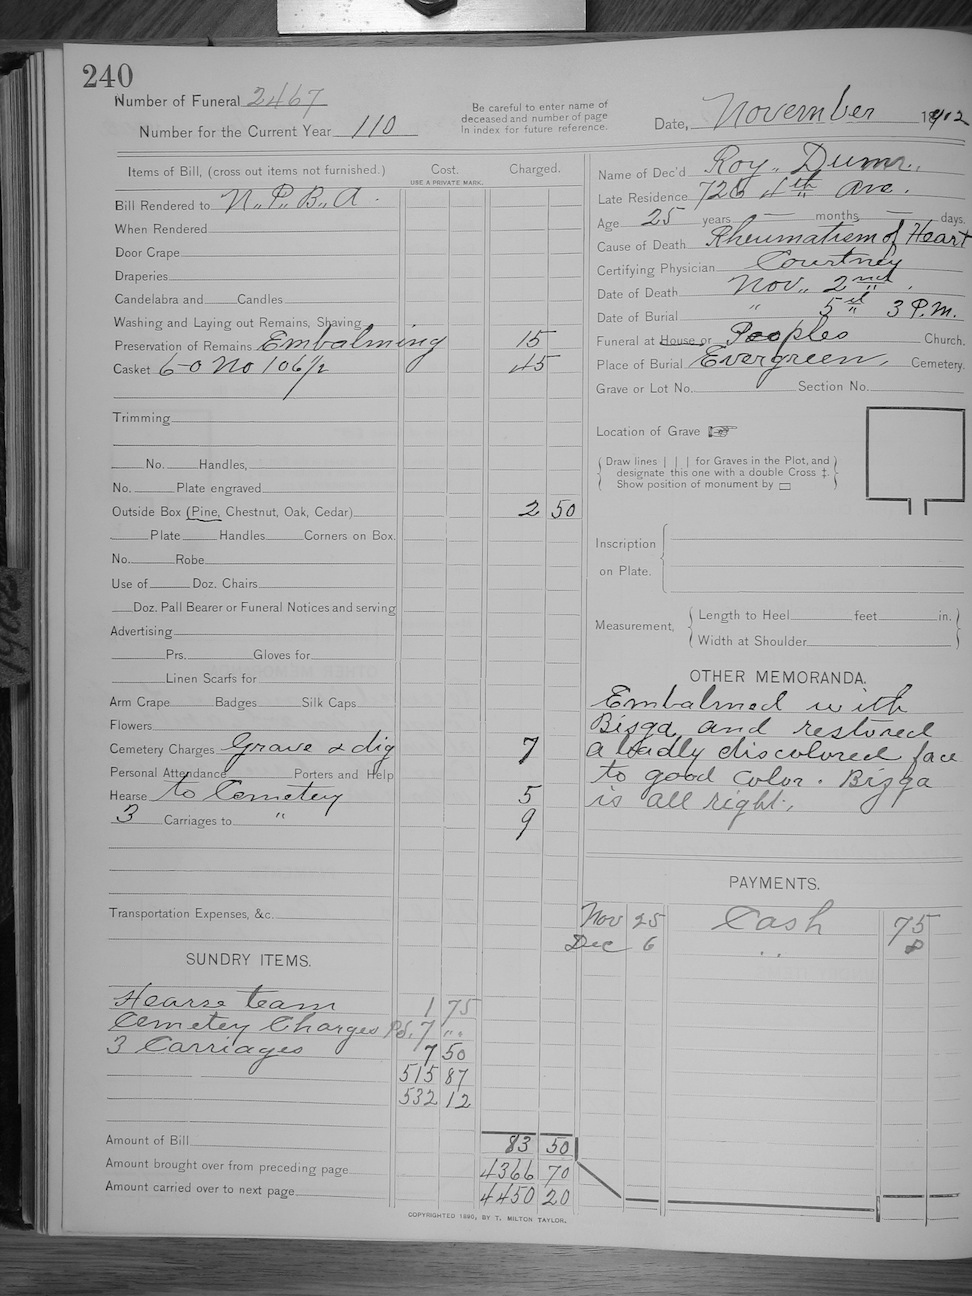 240
Number of Funeral 2467
Number for the Current Year 110
Be careful to enter name of
deceased and number of page
in index for future reference.
Date, November 1902
Items of Bill, (cross out items not furnished.) Cost. Charged.
USE A PRIVATE MARK.
Bill Rendered to N.P.B.A.
When Rendered
Door Crape
Draperies
Candelabra and Candles
Washing and Laying out Remains, Shaving
Preservation of Remains Embalming 15
Casket 6-0 No 106 1/2 45
Trimming
No. Handles,
No. Plate engraved
Outside Box (Pine, Chestnut, Oak, Cedar) 2 50
Plate Handles Corners on Box.
No. Robe
Use of Doz. Chairs
Doz. Pall Bearer or Funeral Notices and serving
Advertising
Prs. Gloves for
Linen Scarfs for
Arm Crape Badges Silk Caps
Flowers
Cemetery Charges Grave & dig 7
Personal Attendance Porters and Help
Hearse to Cemetery 5
3 Carriages to " 9
Transportation Expenses, &c.
SUNDRY ITEMS.
Hearse team 1 75
Cemetey Charges Pd. 7 "
3 Carriages 7 50
515 87
532 12
Amount of Bill 83 50
Amount brought over from preceding page 4366 70
Amount carried over to next page 4450 20
COPYRIGHTED 1890, BY T. MILTON TAYLOR.
Name of Dec'd Roy
Late Residence 726 4th Ave.
Age 25 years — months — days.
Cause of Death Rheumatism of Heart
Certifying Physician Courtney
Date of Death Nov. 2nd
Date of Burial " 5th 3 P.M.
Funeral at House or Peoples Church.
Place of Burial Evergreen, Cemetery.
Grave or Lot No. Section No.
Location of Grave
Draw lines | | | for Graves in the Plot, and
designate this one with a double Cross ‡.
Show position of monument by ▭
Inscription
on Plate.
Measurement,
Length to Heel feet in.
Width at Shoulder
OTHER MEMORANDA.
Embalmed with
Bisga and restored
a badly discolored face
to good color. Bisga
is all right.
PAYMENTS.
Nov 25 Cash 75
Dec 6 " 8